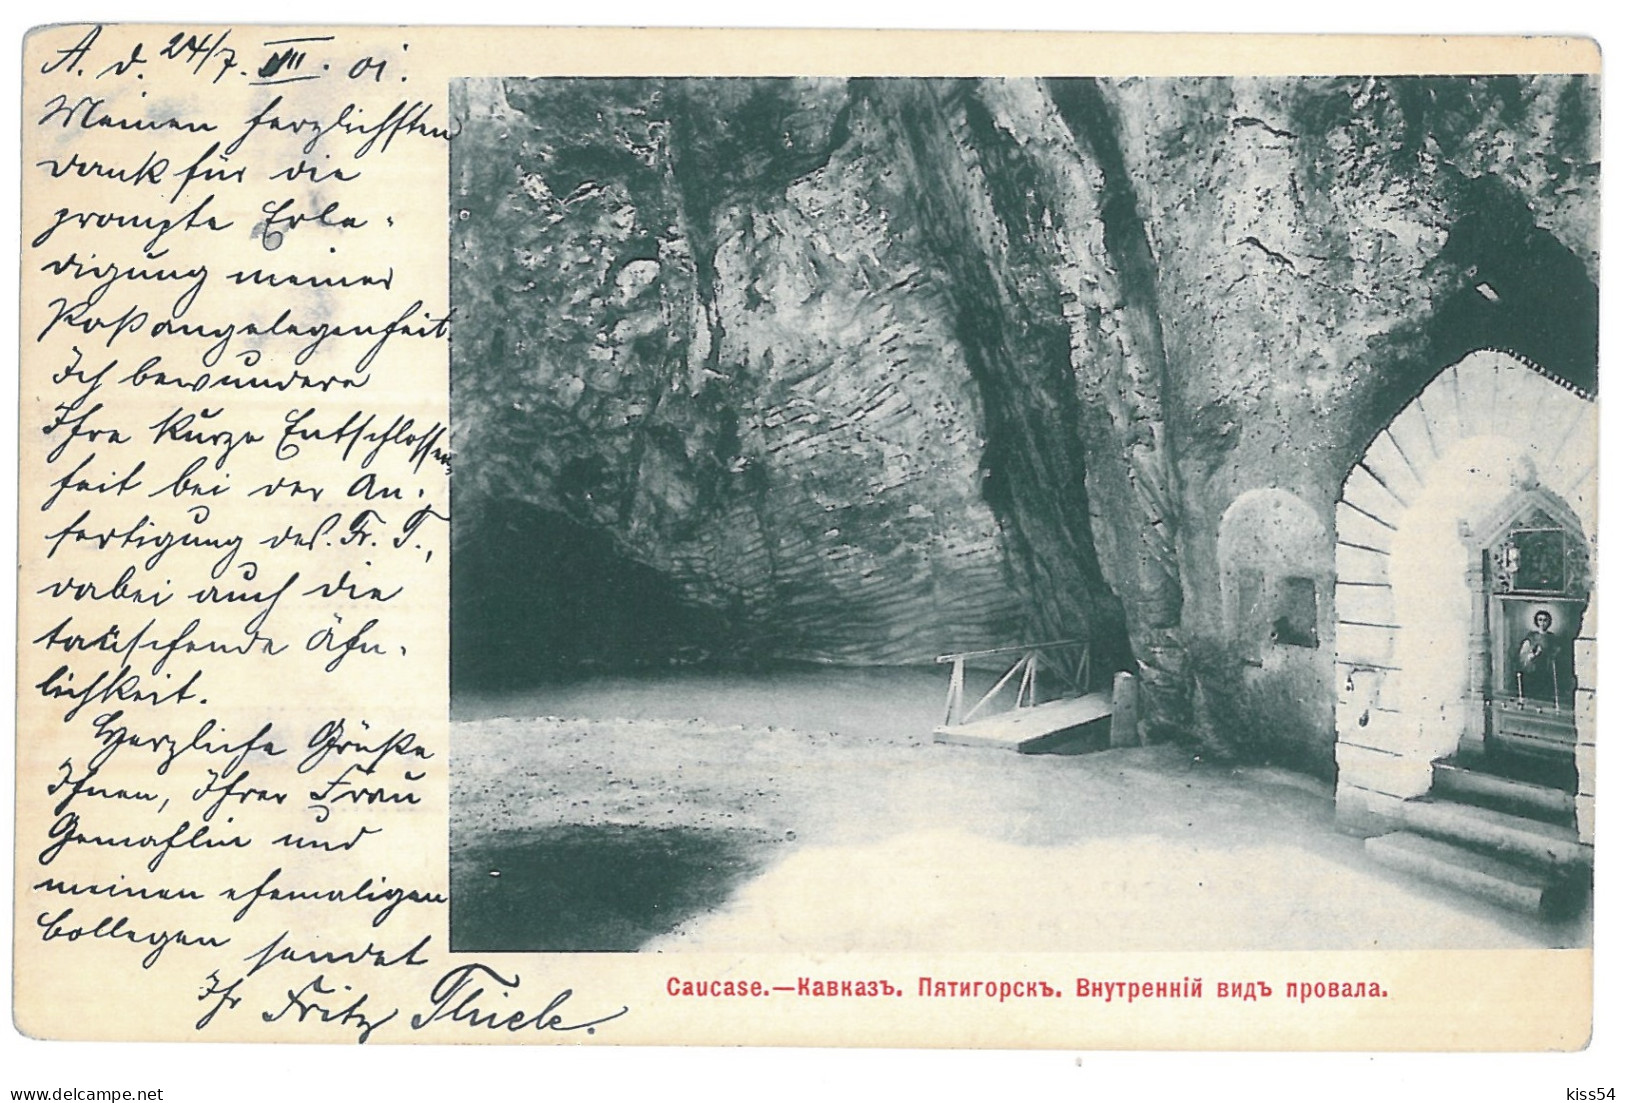 A. d. 24/7. VII. 01.
Meinen herzlichsten
Dank für die
prompte Erle-
digung meiner
Paßangelegenheit.
Ich bewundere
Ihre kurze Entschlossen-
heit bei der An-
fertigung des Fr. T.,
dabei auch die
täuschende Ähn-
lichkeit.
Herzliche Grüße
Ihnen, Ihrer Frau
Gemahlin und
meinen ehemaligen
Collegen sendet
Ihr Fritz Thiele.
Caucase.—Кавказъ. Пятигорскъ. Внутренній видъ провала.
delcampe.net
kiss54